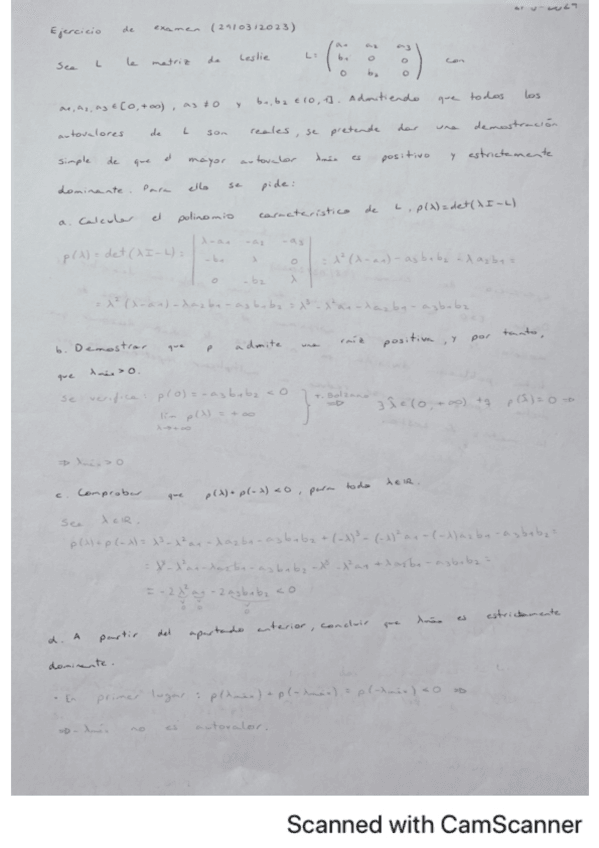 Ejercicio de examen (29/03/2023)
Sea L la matriz de Leslie L = (a₁ a₂ a₃ / b₁ 0 0 / 0 b₂ 0) con
a₁, a₂, a₃ ∈ [0, +∞), a₃ ≠ 0 y b₁, b₂ ∈ (0, 1]. Admitiendo que todos los
autovalores de L son reales, se pretende dar una demostración
simple de que el mayor autovalor λmáx es positivo y estrictamente
dominante. Para ello se pide:
a. Calcular el polinomio característico de L, p(λ) = det(λI - L)
p(λ) = det(λI - L) = |λ-a₁ -a₂ -a₃ / -b₁ λ 0 / 0 -b₂ λ| = λ²(λ-a₁) - a₃b₁b₂ - λa₂b₁ =
= λ²(λ-a₁) - λa₂b₁ - a₃b₁b₂ = λ³ - λ²a₁ - λa₂b₁ - a₃b₁b₂
b. Demostrar que p admite una raíz positiva, y por tanto,
que λmáx > 0.
Se verifica: p(0) = -a₃b₁b₂ < 0
lím p(λ) = +∞ λ→+∞ } T. Bolzano ⇒ ∃ λ̂ ∈ (0, +∞) tq p(λ̂) = 0 ⇒
⇒ λmáx > 0
c. Comprobar que p(λ) + p(-λ) < 0, para todo λ ∈ ℝ.
Sea λ ∈ ℝ.
p(λ) + p(-λ) = λ³ - λ²a₁ - λa₂b₁ - a₃b₁b₂ + (-λ)³ - (-λ)²a₁ - (-λ)a₂b₁ - a₃b₁b₂ =
= λ³ - λ²a₁ - λa₂b₁ - a₃b₁b₂ - λ³ - λ²a₁ + λa₂b₁ - a₃b₁b₂ =
= -2λ²a₁ - 2a₃b₁b₂ < 0
d. A partir del apartado anterior, concluir que λmáx es estrictamente
dominante.
· En primer lugar: p(λmáx) + p(-λmáx) = p(-λmáx) < 0 ⇒
⇒ -λmáx no es autovalor.
Scanned with CamScanner